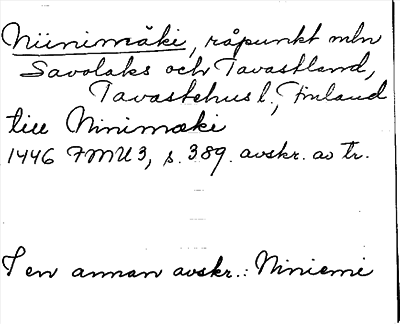 Niinimäki, råpunkt mln
Savolaks och Tavastland,
Tavastehus l., Finland
till Ninimæki
1446 FMU 3, s. 389. avskr. av tr.
I en annan avskr.: Niniemi